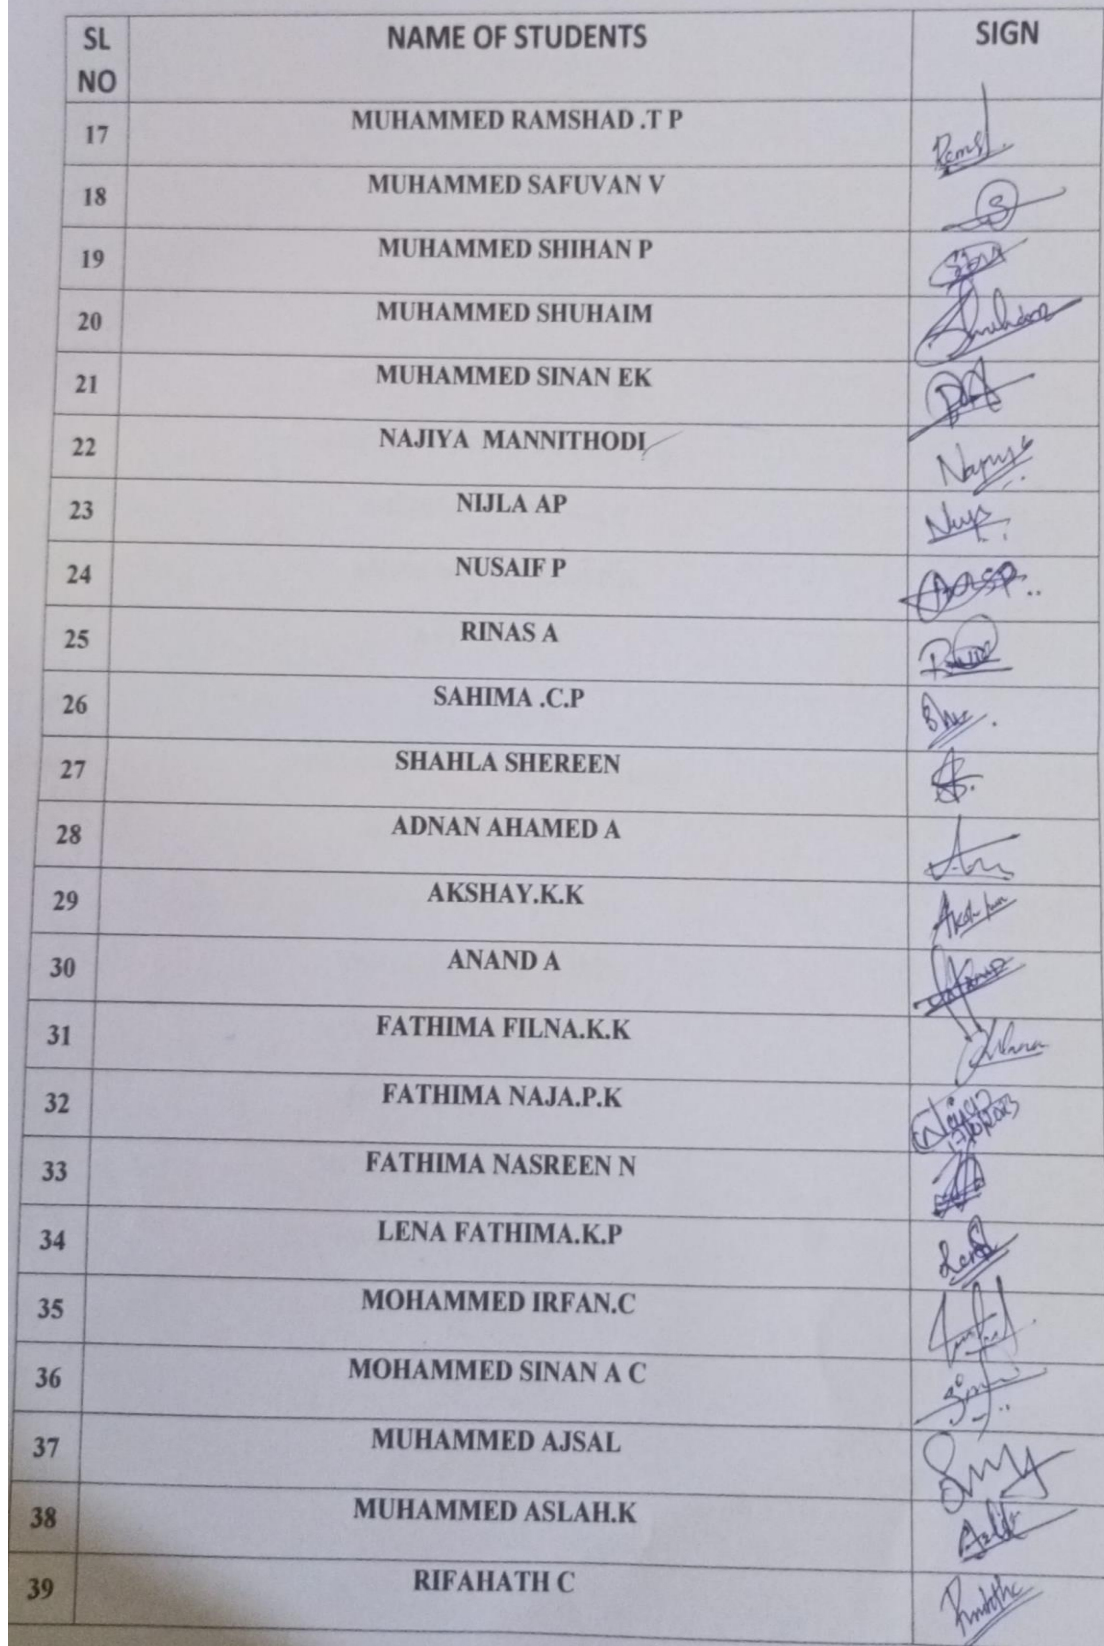 SL NO NAME OF STUDENTS SIGN
17 MUHAMMED RAMSHAD .T P
18 MUHAMMED SAFUVAN V
19 MUHAMMED SHIHAN P
20 MUHAMMED SHUHAIM
21 MUHAMMED SINAN EK
22 NAJIYA MANNITHODI
23 NIJLA AP
24 NUSAIF P
25 RINAS A
26 SAHIMA .C.P
27 SHAHLA SHEREEN
28 ADNAN AHAMED A
29 AKSHAY.K.K
30 ANAND A
31 FATHIMA FILNA.K.K
32 FATHIMA NAJA.P.K
33 FATHIMA NASREEN N
34 LENA FATHIMA.K.P
35 MOHAMMED IRFAN.C
36 MOHAMMED SINAN A C
37 MUHAMMED AJSAL
38 MUHAMMED ASLAH.K
39 RIFAHATH C